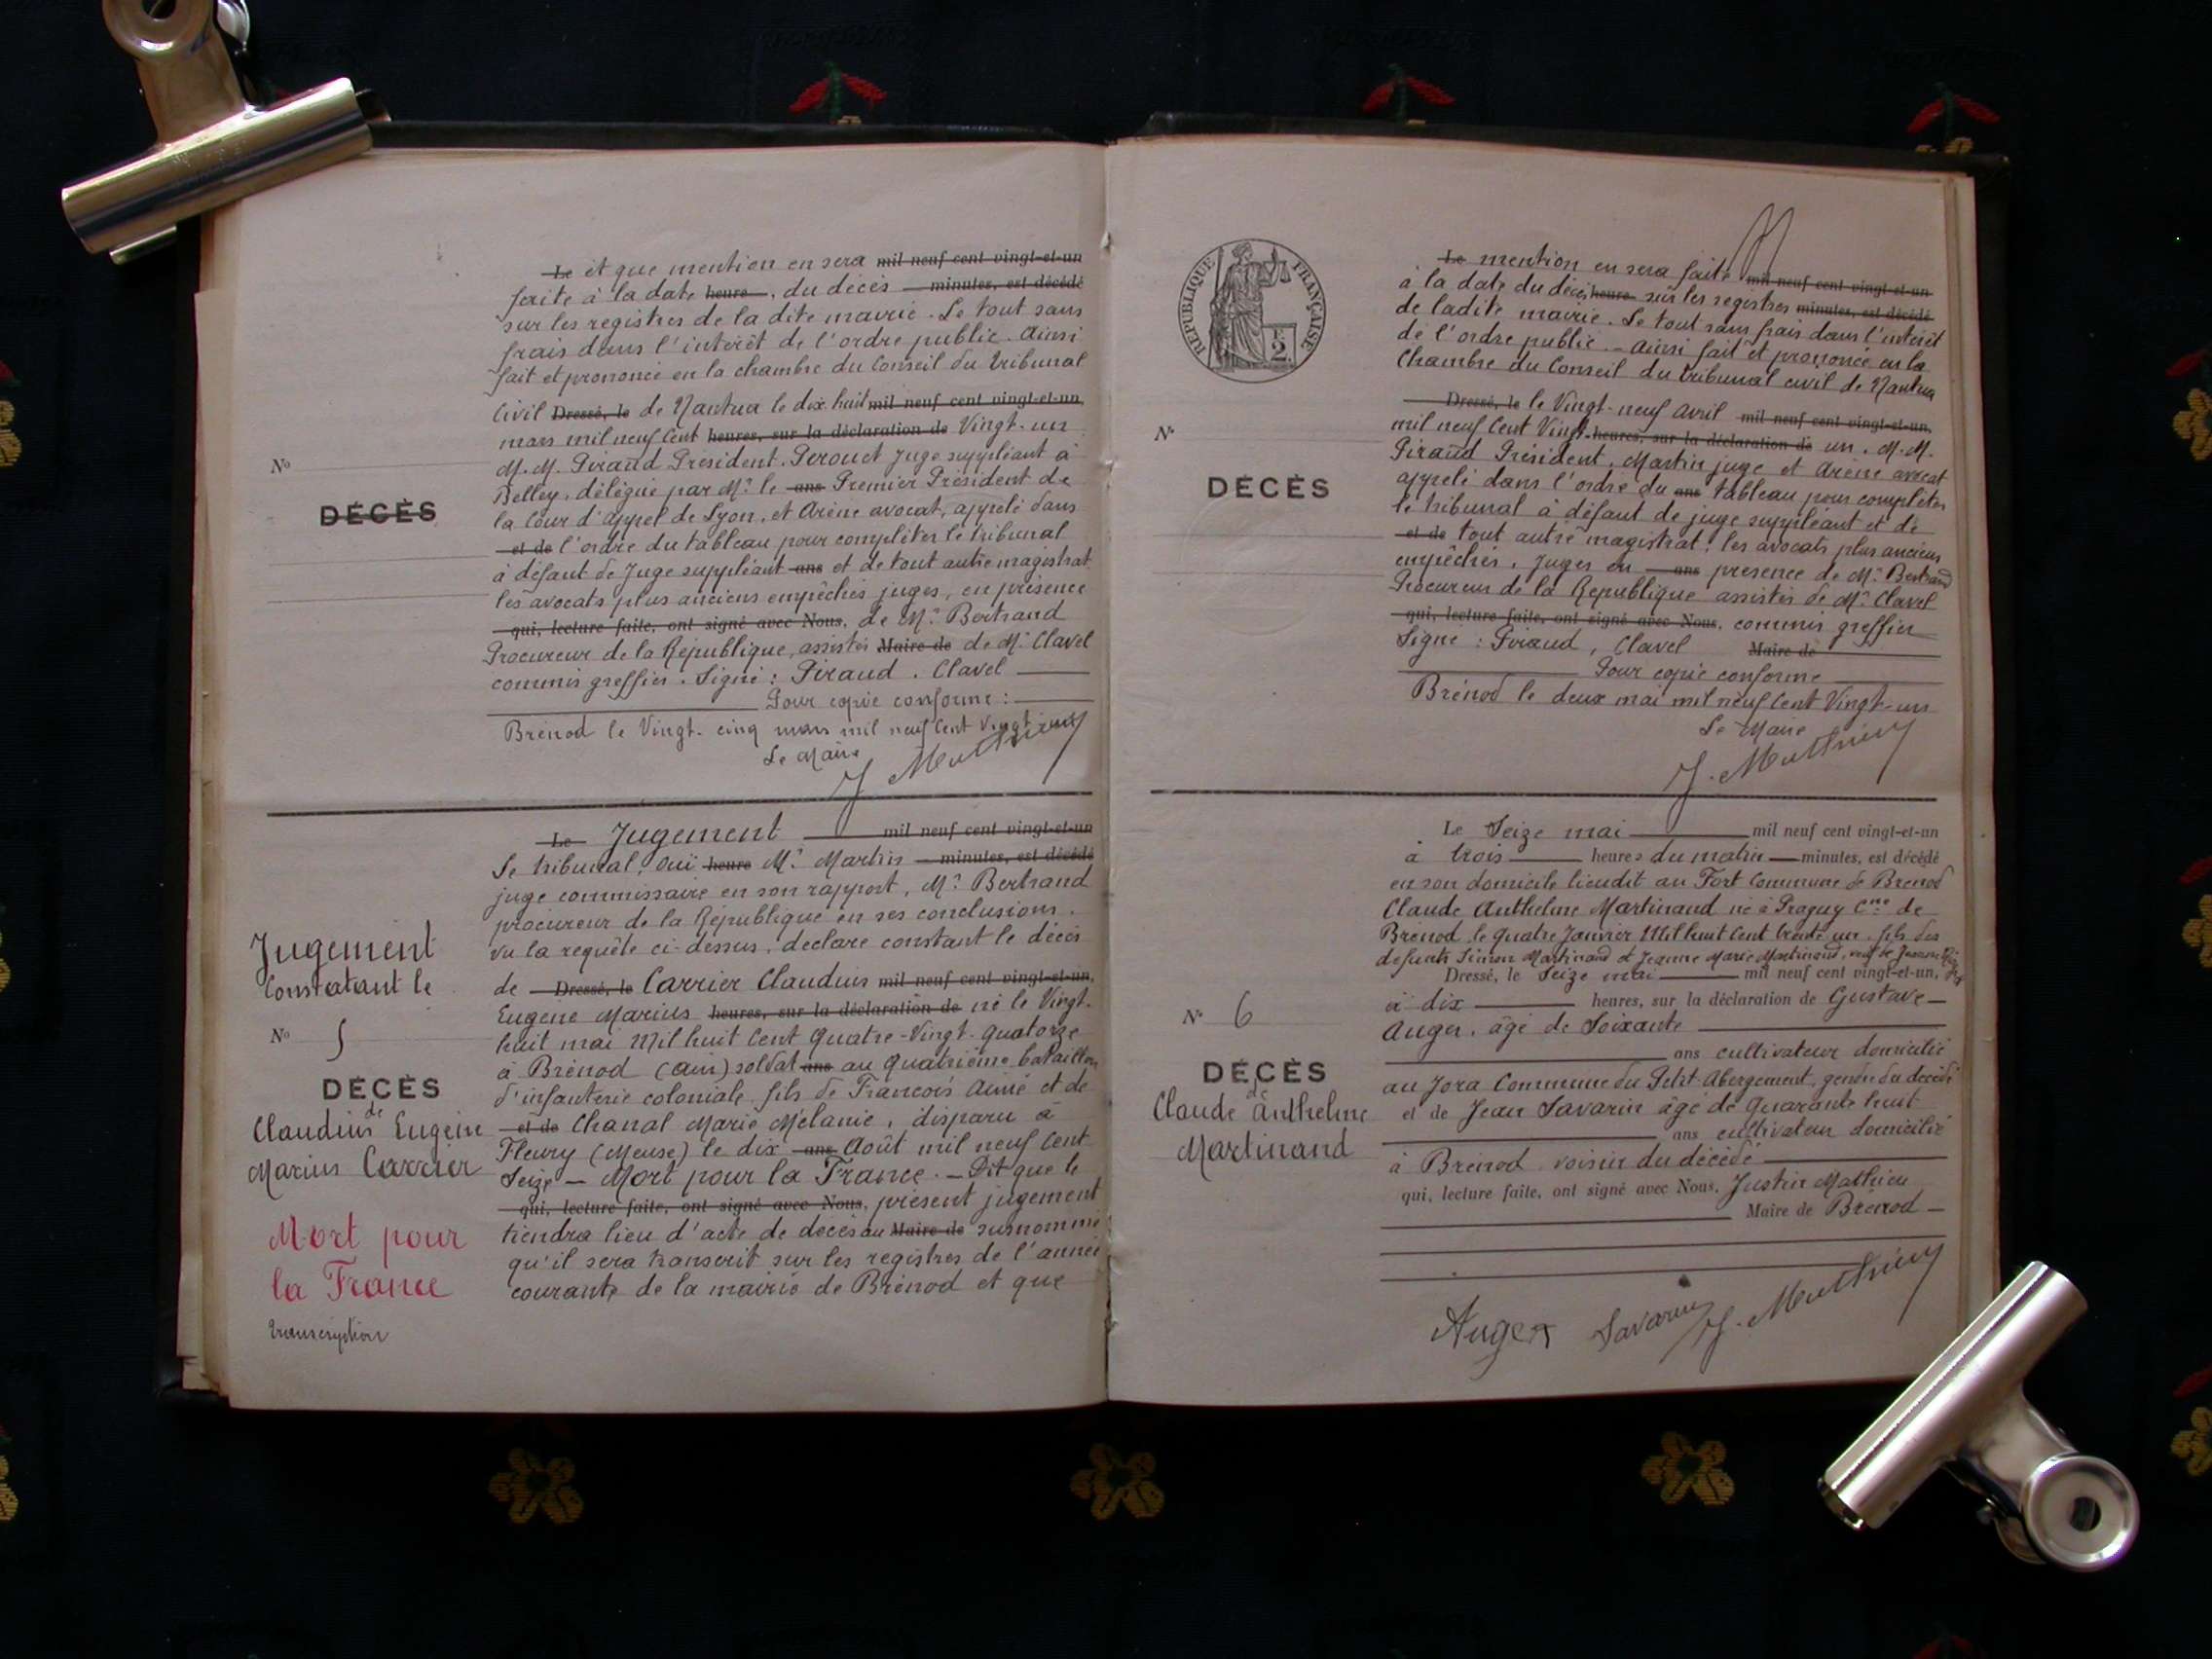 Le et que mention en sera mil neuf cent vingt-et-un
faite à la date heure, du décès minutes, est décédé
sur les registres de la dite mairie. Le tout sans
frais dans l'intérêt de l'ordre public. Ainsi
fait et prononcé en la chambre du Conseil du tribunal
Civil Dressé, le de Nantua le dix huit mil neuf cent vingt-et-un,
mars mil neuf Cent heures, sur la déclaration de Vingt-un
M.M. Piraud Président. Perouet Juge suppléant à
Belley, délégué par Mr. le ans Premier Président de
la Cour d'Appel de Lyon, et Arène avocat, appelé dans
et de l'ordre du tableau pour compléter le tribunal
à défaut de Juge suppléant ans et de tout autre magistrat
les avocats plus anciens empêchés juges, en présence
qui, lecture faite, ont signé avec Nous, de Mr. Bertrand
Procureur de la République, assistés Maire de de Mr. Clavel
commis greffier. Signé : Piraud. Clavel
Pour copie conforme :
Brénod le Vingt-cinq mars mil neuf Cent Vingt-un
Le Maire
J. Mathieu
No
DÉCÈS
Le Jugement mil neuf cent vingt-et-un
Le tribunal, oui heure Mr. Martin minutes, est décédé
juge commissaire en son rapport, Mr. Bertrand
procureur de la République en ses conclusions.
vu la requête ci-dessus, déclare constant le décès
de Dressé, le Carrier Claudius mil neuf cent vingt-et-un,
Eugène Marius heures, sur la déclaration de né le Vingt-
huit mai Mil huit Cent Quatre-Vingt-Quatorze
à Brénod (Ain) soldat ans au Quatrième bataillon
d'infanterie coloniale, fils de François Aimé et de
et de Chanal Marie Mélanie, disparu à
Fleury (Meuse) le dix ans Août mil neuf Cent
Seize - Mort pour la France. - Dit que le
qui, lecture faite, ont signé avec Nous, présent jugement
tiendra lieu d'acte de décès au Maire de susnommé
qu'il sera transcrit sur les registres de l'année
courante de la mairie de Brénod et que
Jugement
Constatant le
No 5
DÉCÈS
de
Claudius Eugène
Marius Carrier
Mort pour
la France
transcription
RÉPUBLIQUE FRANÇAISE
E.
2.
Le mention en sera faite mil neuf cent vingt-et-un
à la date du décès heure sur les registres minutes, est décédé
de ladite mairie. Le tout sans frais dans l'intérêt
de l'ordre public. - Ainsi fait et prononcé en la
Chambre du Conseil du tribunal civil de Nantua
Dressé, le le Vingt-neuf Avril mil neuf cent vingt-et-un,
mil neuf Cent Vingt-heures, sur la déclaration de un. M.M.
Piraud Président, Martin juge et Arène avocat
appelé dans l'ordre du ans tableau pour compléter
le tribunal à défaut de juge suppléant et de
et de tout autre magistrat, les avocats plus anciens
empêchés, Juges en ans présence de Mr. Bertrand
Procureur de la République assistés de Mr. Clavel
qui, lecture faite, ont signé avec Nous, commis greffier
Signé : Piraud, Clavel Maire de
Pour copie conforme
Brénod le deux mai mil neuf Cent Vingt-un
Le Maire
J. Mathieu
No
DÉCÈS
Le Seize mai mil neuf cent vingt-et-un
à trois heures du matin minutes, est décédé
en son domicile lieudit au Fort Commune de Brénod
Claude Anthelme Martinand né à Praguy Cne de
Brénod, le Quatre Janvier Mil huit Cent trente un, fils des
défunts Simon Martinand et Jeanne Marie Martinand, veuf de
Dressé, le Seize mai mil neuf cent vingt-et-un,
à dix heures, sur la déclaration de Gustave
Auger, âgé de Soixante
ans cultivateur domicilié
au Jora Commune du Petit-Abergement, gendre du décédé
et de Jean Savarin âgé de Quarante huit
ans cultivateur domicilié
à Brénod, voisin du décédé
qui, lecture faite, ont signé avec Nous, Justin Mathieu
Maire de Brénod
Auger Savarin J. Mathieu
No 6
DÉCÈS
de
Claude Anthelme
Martinand